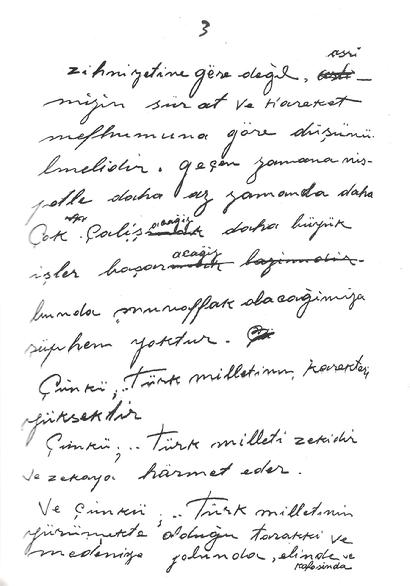 3
zihniyetine göre değil, asri
mizin sür'at ve hareket
mefhumuna göre düşünü
lmelidir. geçen zamana nis-
petle daha az zamanda daha
çok çalışacağız daha büyük
işler başaracağız
bunda muvaffak olacağımıza
şüphem yoktur.
Çünkü, Türk milletinin, karakteri
yüksektir
Çünkü, Türk milleti zekidir
ve zekaya hürmet eder.
Ve çünkü, Türk milletinin
yürümekte olduğu terakki ve
medeniye yolunda, elinde ve
kafasında